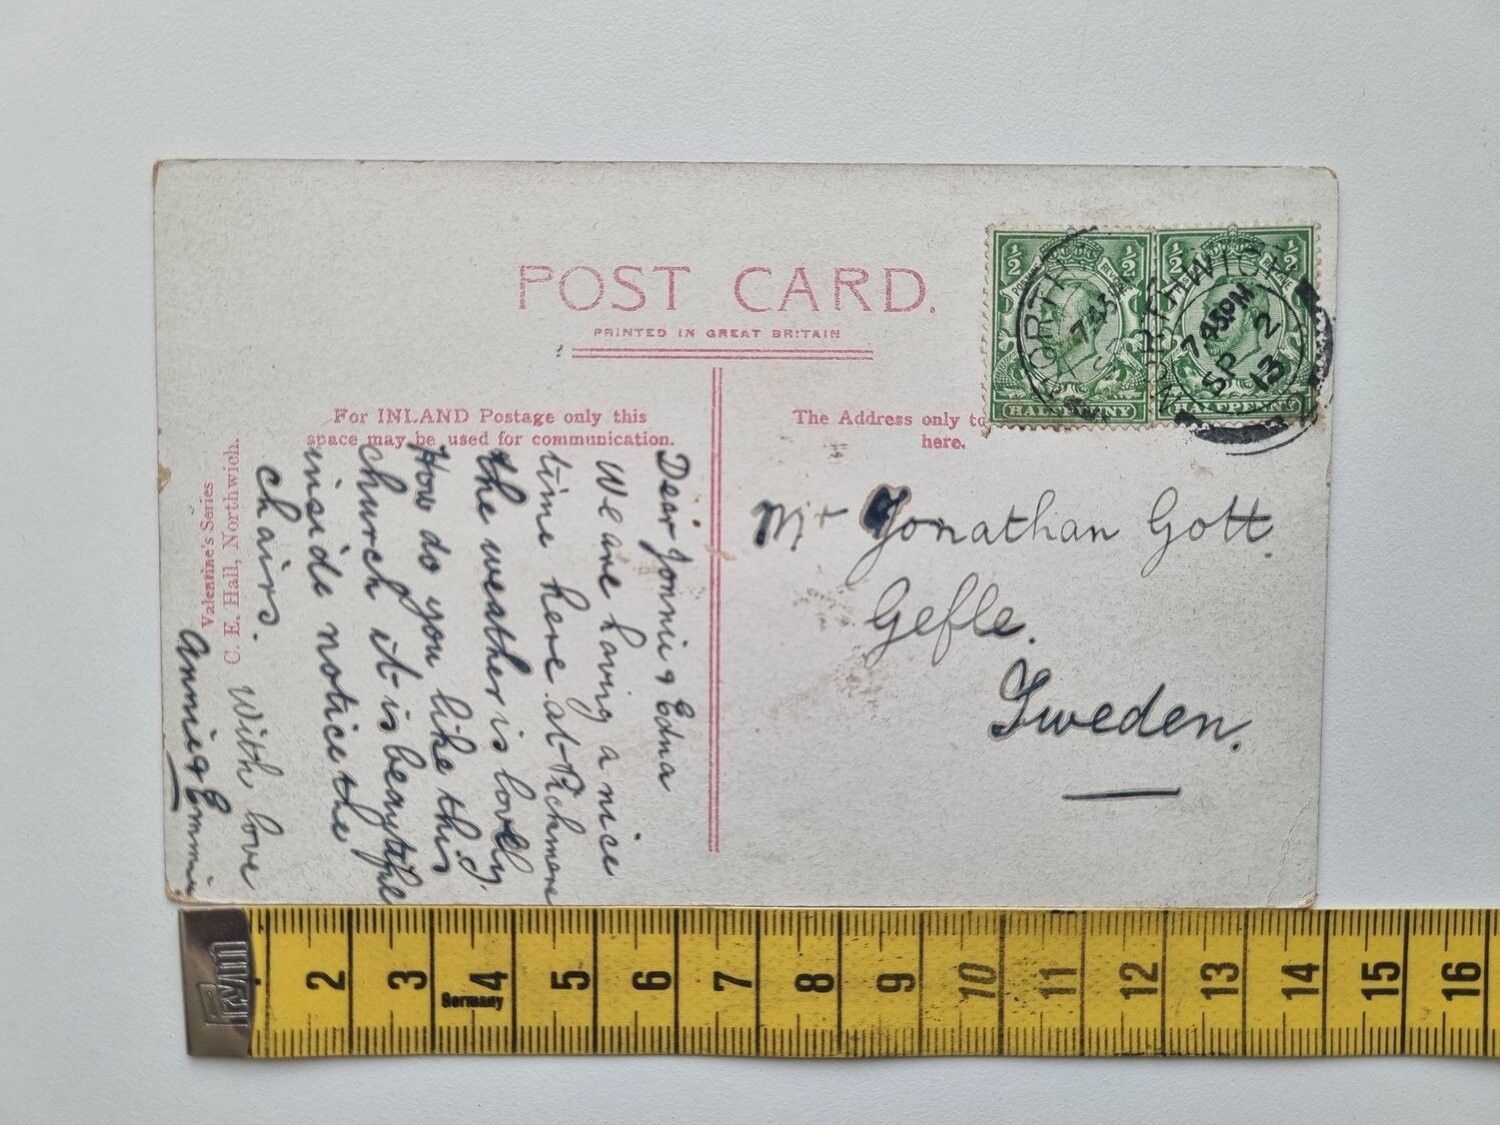 POST CARD.
PRINTED IN GREAT BRITAIN
For INLAND Postage only this
space may be used for communication.
The Address only to
here.
½ ½
POSTAGE REVENUE
HALFPENNY
½ ½
HALFPENNY
NORTHWICH
7.45PM
SP 2
13
NORTH
7.45
Dear Jonnie & Edna
We are having a nice
time here at
the weather is lovely.
How do you like this
church it is beautiful
inside notice the
chairs.
With love
Annie & Emmie
Valentine's Series
C. E. Hall, Northwich.
Mr Jonathan Gott.
Gefle.
Sweden.
Prym
Germany
2 3 4 5 6 7 8 9 10 11 12 13 14 15 16